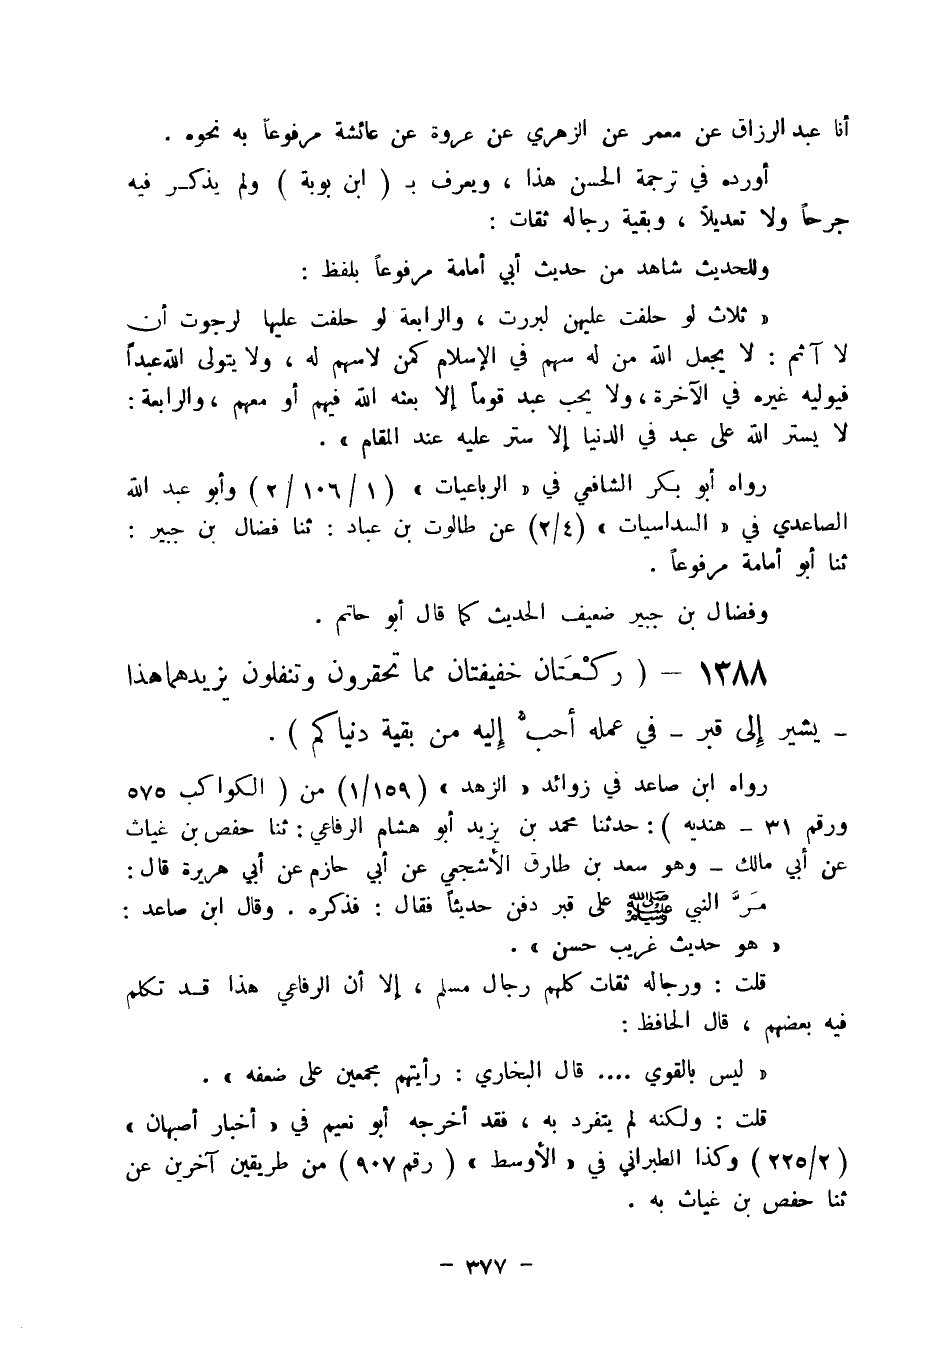 أنا عبد الرزاق عن معمر عن الزهري عن عروة عن عائشة مرفوعاً به نحوه .
أورده في ترجمة الحسن هذا ، ويعرف بـ ( ابن بوبة ) ولم يذكـر فيه
جرحاً ولا تعديلاً ، وبقية رجاله ثقات :
وللحديث شاهد من حديث أبي أمامة مرفوعاً بلفظ :
« ثلاث لو حلفت عليهن لبررت ، والرابعة لو حلفت عليها لرجوت أن
لا آثم : لا يجعل الله من له سهم في الإسلام كمن لاسهم له ، ولا يتولى الله عبداً
فيوليه غيره في الآخرة ، ولا يحب عبد قوماً إلا بعثه الله فيهم أو معهم ، والرابعة :
لا يستر الله على عبد في الدنيا إلا ستر عليه عند المقام » .
رواه أبو بكر الشافعي في « الرباعيات » ( ١ / ١٠٦ / ٢ ) وأبو عبد الله
الصاعدي في « السداسيات » (٢/٤) عن طالوت بن عباد : ثنا فضال بن جبير :
ثنا أبو أمامة مرفوعاً .
وفضال بن جبير ضعيف الحديث كما قال أبو حاتم .
١٣٨٨ – ( ركْعَتان خفيفتان مما تحقرون وتنفلون يزيدهما هذا
ـ يشير إلى قبر ـ في عمله أحبُّ إليه من بقية دنياكم ) .
رواه ابن صاعد في زوائد « الزهد » (١/١٥٩) من ( الكواكب ٥٧٥
ورقم ٣١ ـ هنديه ) : حدثنا محمد بن يزيد أبو هشام الرفاعي : ثنا حفص بن غياث
عن أبي مالك ـ وهو سعد بن طارق الأشجعي عن أبي حازم عن أبي هريرة قال :
مَرَّ النبي ﷺ على قبر دفن حديثاً فقال : فذكره . وقال ابن صاعد :
« هو حديث غريب حسن » .
قلت : ورجاله ثقات كلهم رجال مسلم ، إلا أن الرفاعي هذا قـد تكلم
فيه بعضهم ، قال الحافظ :
« ليس بالقوي .... قال البخاري : رأيتهم مجمعين على ضعفه » .
قلت : ولكنه لم يتفرد به ، فقد أخرجه أبو نعيم في « أخبار أصبهان »
( ٢٢٥/٢ ) وكذا الطبراني في « الأوسط » ( رقم ٩٠٧ ) من طريقين آخرين عن
ثنا حفص بن غياث به .
– ٣٧٧ –